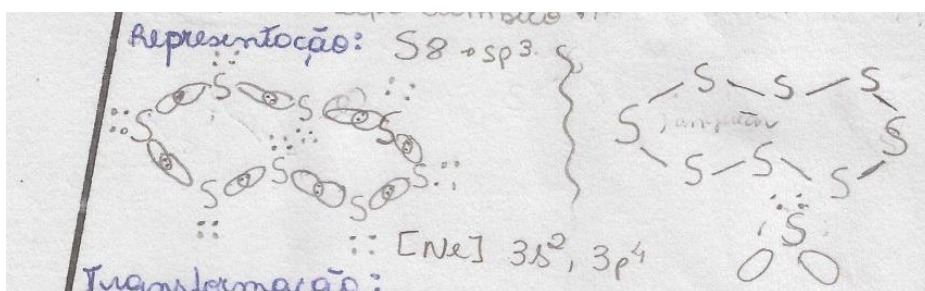 Representação: S8 → sp3.
S S S S S S S S
S S S S S S S S
S
[Ne] 3s², 3p⁴
Transformação: